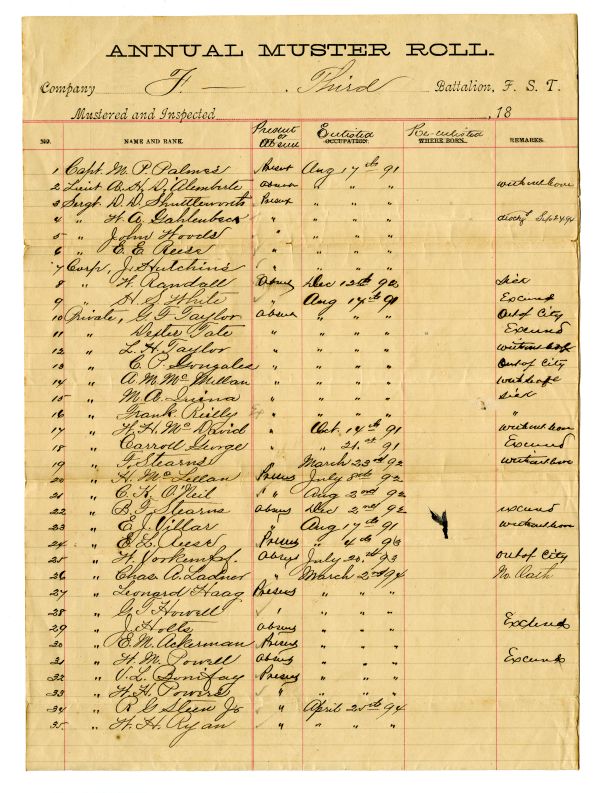 ANNUAL MUSTER ROLL.
Company F — . Third Battalion, F. S. T.
Mustered and Inspected , 18
NO. NAME AND RANK. Present or Absent Enlisted OCCUPATION. Re-enlisted WHERE BORN. REMARKS.
1 Capt. M. P. Palmes Present Aug 17th 91
2 Lieut A. H. D'Alemberte absent " " " without leave
3 Sergt D. D. Shuttleworth Present " " "
4 " W. A. Gahlenbeck " " " " Sept 24 94
5 " John Woods " " " "
6 " E. E. Reese " " " "
7 Corp. J. Hutchins " " " "
8 " W. Randall Absent Dec 12th 92 sick
9 " H. S. White " Aug 17th 91 Excused
10 Private, G. F. Taylor absent " " " Out of City
11 " Dexter Tate " " " Excused
12 " L. H. Taylor " " " without leave
13 " C. P. Gonzales " " " Out of City
14 " A. M. McMillan " " "
15 " M. A. Quina " " " sick
16 " Frank Reilly " " " "
17 " W. H. McDavid " Oct 14th 91 without leave
18 " Carroll George " " 21st 91 Excused
19 " F. Stearns March 23rd 92 without leave
20 " H. McLellan Present July 8th 92
21 " C. H. O'Neil " Aug 2nd 92
22 " B. F. Stearns absent Dec 2nd 92 excused
23 " E. J. Villar " Aug 17th 91 without leave
24 " E. L. Reese Present " 4th 93
25 " W. Absent July 20th 93 out of City
26 " Chas. A. Ladner " March 2nd 94 No Oath
27 " Leonard Haag Present " " "
28 " G. T. Howell " " " "
29 " J. Holts absent " " " Excused
30 " E. M. Ackerman Present " " "
31 " W. M. Powell absent " " " Excused
32 " V. L. Bonifay Present " " "
33 " W. H. Powers " " " "
34 " R. G. Jr " April 25th 94
35 " W. H. Ryan " " " "